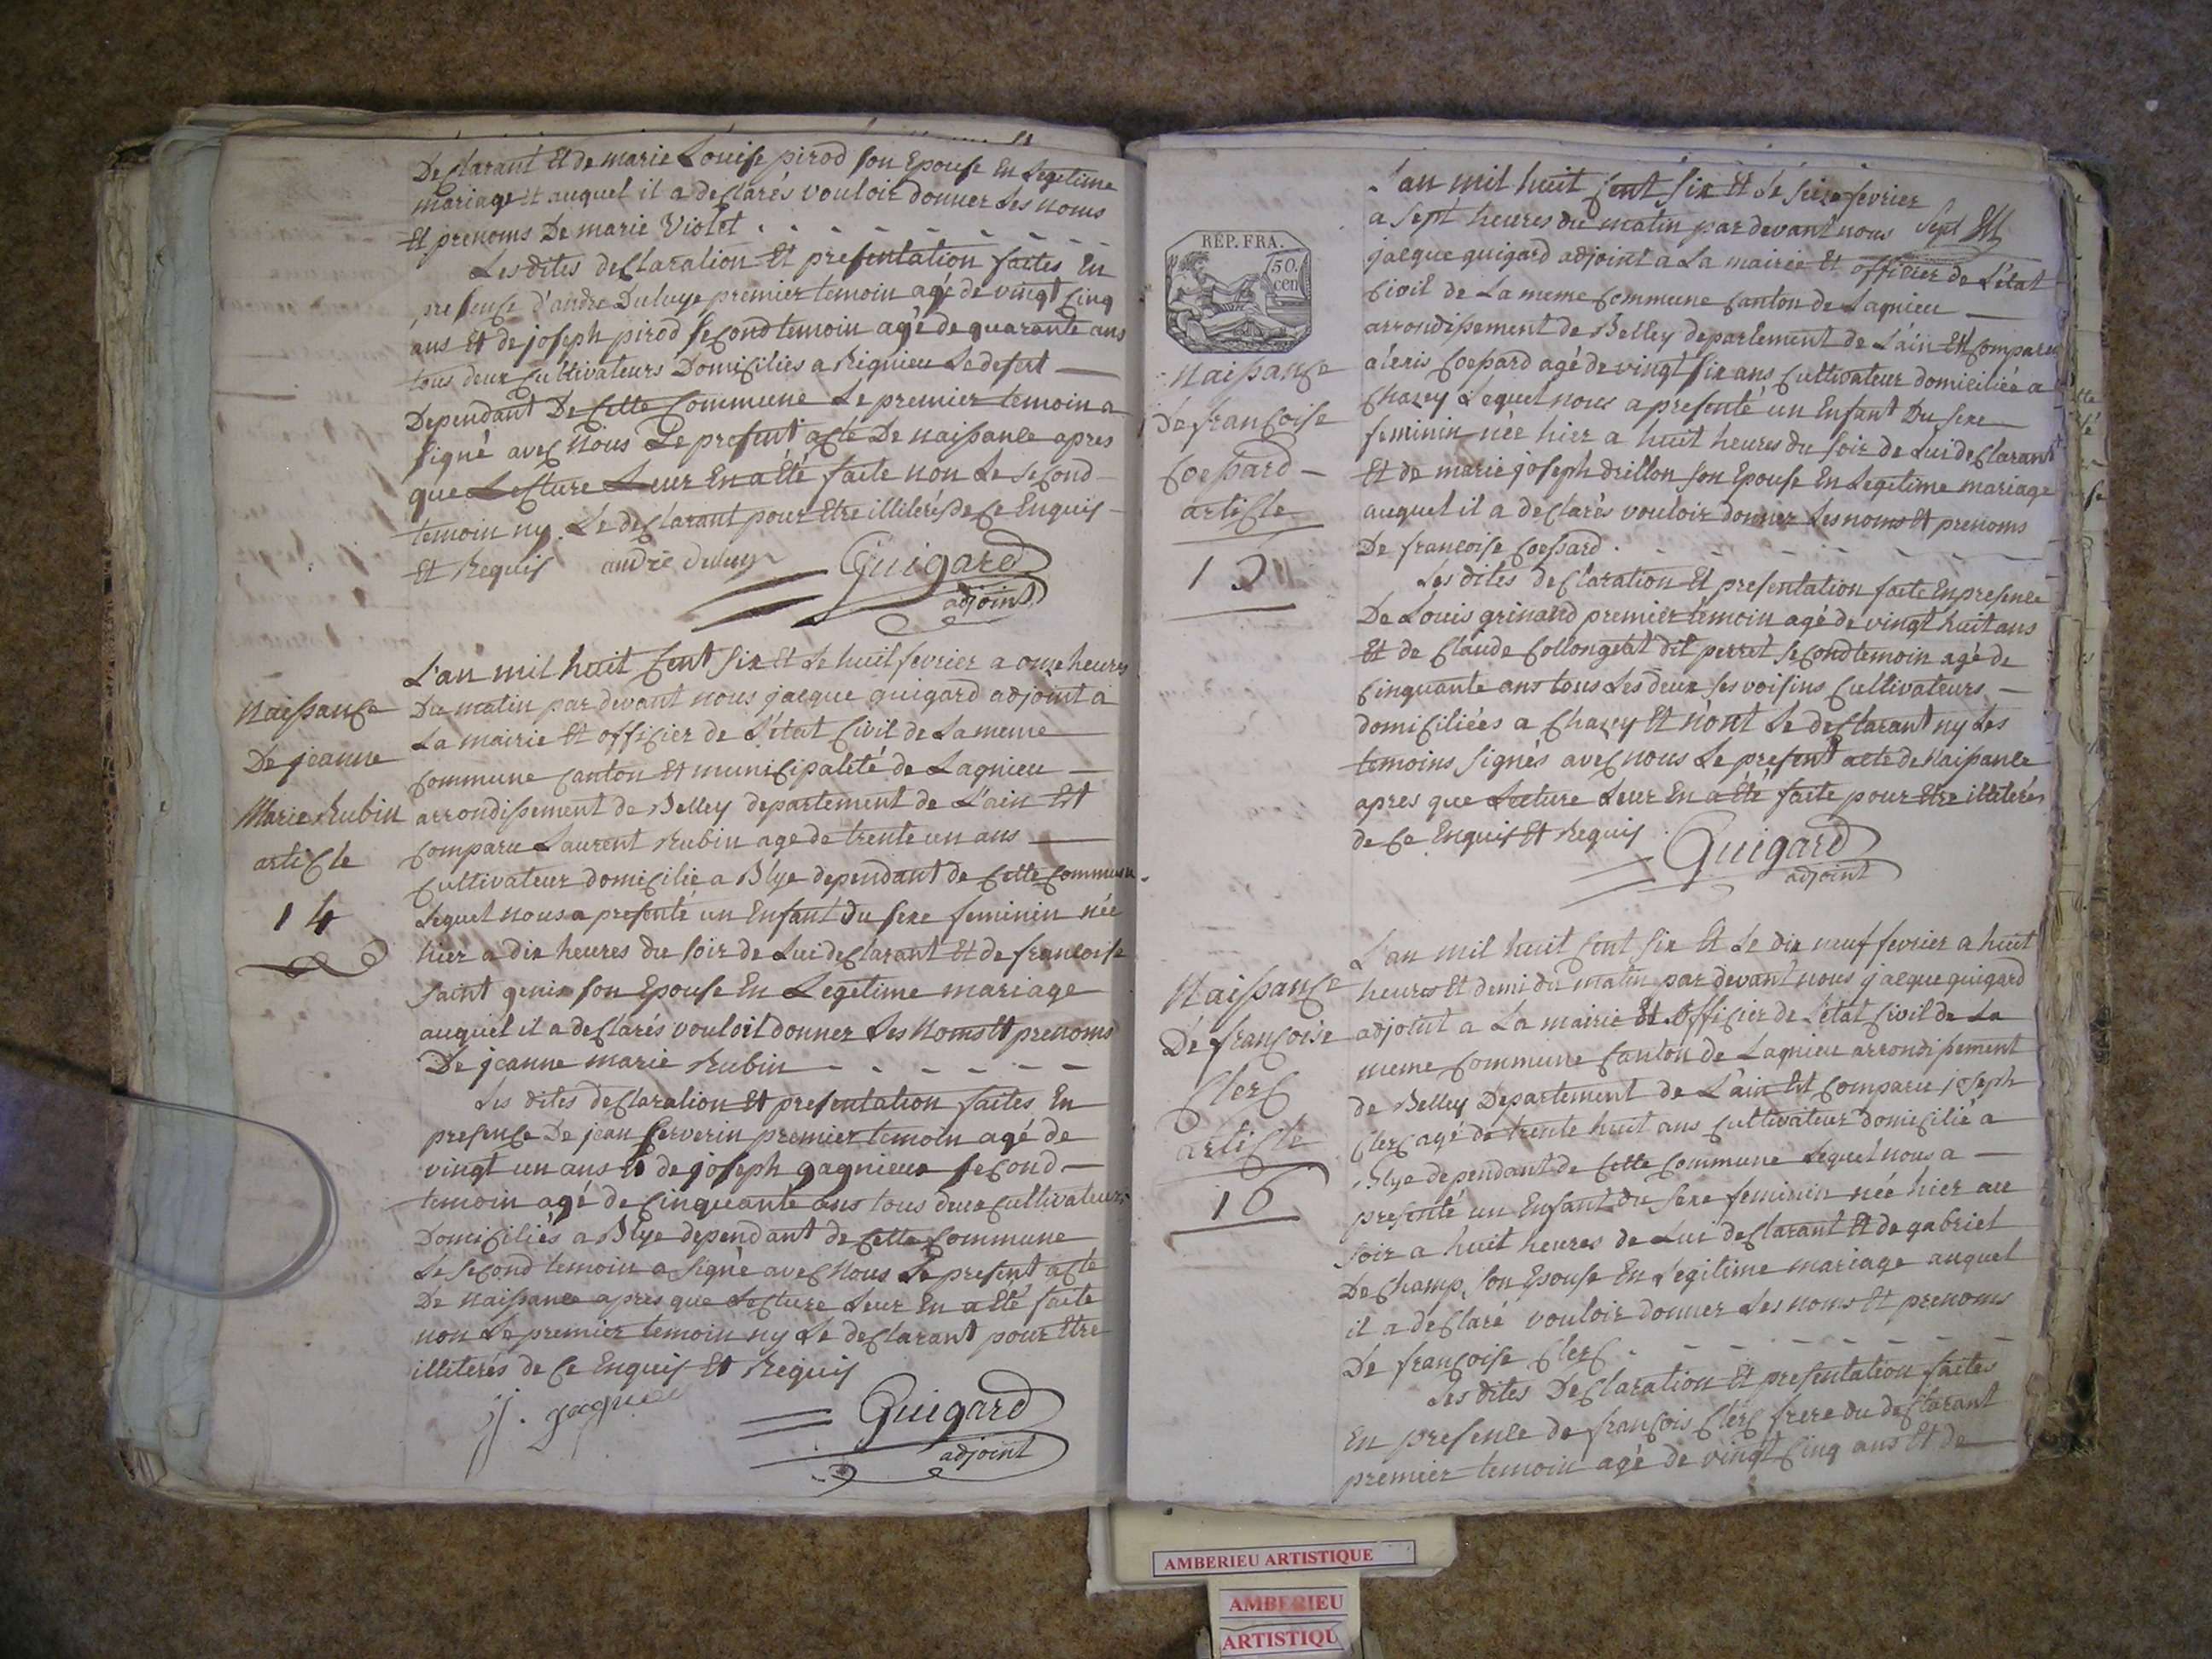 Declarant Et de marie Louise pirod son Epouse En Legetime
mariage Et auquel il a declarés vouloir donner Les noms
Et prenoms De marie Violet
Les dites declaration Et presentation faites En
presence d'andre Duluye premier temoin agé de vingt Cinq
ans Et de joseph pirod second temoin agé de quarante ans
tous deux Cultivateurs Domiciliés a Rignieu Le desert
Dependant De Cette Commune Le premier temoin a
signé avec Nous Le present acte De naissance apres
que Lecture Leur En a Eté faite non Le second
temoin ny Le declarant pour Etre illiterés de Ce Enquis
Et Requis andré duluy Guigard
adjoint
Naissance
De jeanne
Marie Rubin
article
14
L'an mil huit Cent six Et Le huit fevrier a onze heures
Du matin par devant nous jacque guigard adjoint a
La mairie Et officier de L'état Civil de La meme
Commune Canton Et municipalité de Lagnieu
arrondissement de Belley departement de L'ain Est
Comparu Laurent Rubin age de trente un ans
Cultivateur domicilié a Blye dependant de Cette Commune
Lequel nous a presenté un Enfant Du sexe feminin née
hier a dix heures du soir de Lui declarant Et de francoise
saint genis son Epouse En Legetime mariage
auquel il a declarés vouloit donner Les Noms Et prenoms
De jeanne marie Rubin
Les dites declaration Et presentation faites En
presence De jean Serverin premier temoin agé de
vingt un ans Et de joseph gagnieux second
temoin agé de Cinquante ans tous deux Cultivateurs
Domiciliés a Blye dependant de Cette Commune
Le second temoin a signé avec Nous Le present acte
De naissance apres que Lecture Leur En a Eté faite
non Le premier temoin ny Le declarant pour Etre
illiterés de Ce Enquis Et Requis
Guigard
adjoint
RÉP. FRA.
50.
cen
Naissance
De françoise
Coessard
article
L'an mil huit Cent six Et Le seize fevrier
a sept heures du matin par devant nous
jacque guigard adjoint a La mairie Et officier de L'état
Civil de La meme Commune Canton de Lagnieu
arrondissement de Belley departement de L'ain Est Comparu
aléxis Coessard agé de vingt six ans Cultivateur domiciliée a
Chazey Lequel nous a presenté un Enfant Du sexe
feminin née hier a huit heures du soir de Lui declarant
Et de marie joseph drillon son Epouse En Legetime mariage
auquel il a declarés vouloir donner Les noms Et prenoms
De françoise Coessard
Les dites declaration Et presentation faite En presence
De Louis grinand premier temoin agé de vingt huit ans
Et de Claude Collongeat dit perret second temoin agé de
Cinquante ans tous Les deux ses voisins Cultivateurs
domiciliées a Chazey Et n'ont Le declarant ny Les
temoins signés avec nous Le present acte de Naissance
apres que Lecture Leur En a Eté faite pour Etre illiterés
de Ce Enquis Et Requis Guigard
adjoint
Naissance
De françoise
Clerc
article
16
L'an mil huit Cent six Et Le dix neuf fevrier a huit
heures Et demi du matin par devant nous jacque guigard
adjoint a La mairie Et officier de L'état Civil de La
meme Commune Canton de Lagnieu arrondissement
de Belley Departement de L'ain Est Comparu joseph
Clerc agé de trente huit ans Cultivateur domicilié a
Blye dependant de Cette Commune Lequel nous a
presenté un Enfant du sexe feminin née hier au
soir a huit heures de Lui declarant Et de gabriel
De Champ, son Epouse En Legitime mariage auquel
il a declaré vouloir donner Les noms Et prenoms
De françoise Clerc
Les dites Declaration Et presentation faites
En presence de françois Clerc frere du declarant
premier temoin agé de vingt Cinq ans Et de
AMBERIEU ARTISTIQUE
AMBERIEU
ARTISTIQU